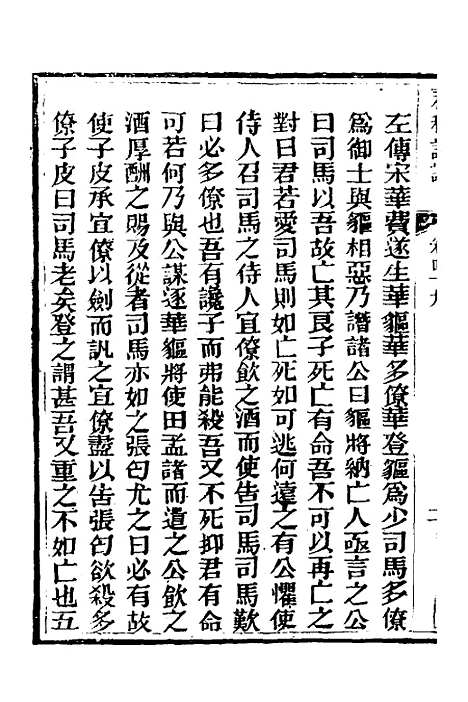 左傳宋華費遂生華貙華多僚華登貙爲少司馬多僚
爲御士與貙相惡乃譖諸公曰貙將納亡人亟言之公
曰司馬以吾故亡其良子死亡有命吾不可以再亡之
對曰君若愛司馬則如亡死如可逃何遠之有公懼使
侍人召司馬之侍人宜僚飲之酒而使告司馬司馬歎
曰必多僚也吾有讒子而弗能殺吾又不死抑君有命
可若何乃與公謀逐華貙將使田孟諸而遣之公飲之
酒厚酬之賜及從者司馬亦如之張匄尤之曰必有故
使子皮承宜僚以劍而訊之宜僚盡以告張匄欲殺多
僚子皮曰司馬老矣登之謂甚吾又重之不如亡也五